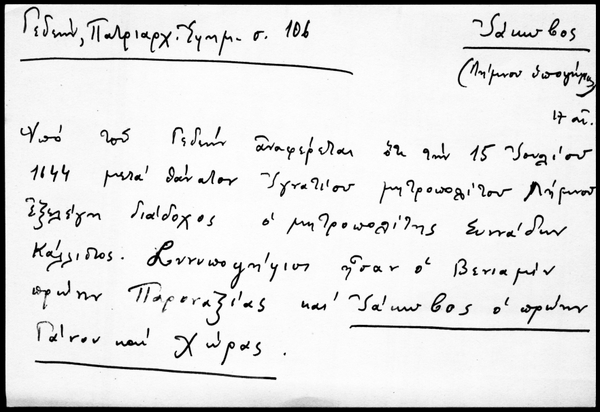 Γεδεών, Πατριαρχ. Ἐφημ. σ. 106
Ἰάκωβος
(Λήμνου ὑποψήφιος)
17 αἰ.
Ὑπό τοῦ Γεδεών ἀναφέρεται ὅτι τήν 15 Ἰουλίου
1644 μετά θάνατον Ἰγνατίου μητροπολίτου Λήμνου
ἐξελέγη διάδοχος ὁ μητροπολίτης Συννάδων
Κάλλιστος. Συνυποψήφιοι ἦσαν ὁ Βενιαμίν
πρώην Παροναξίας καί Ἰάκωβος ὁ πρώην
Γάνου καί Χώρας.